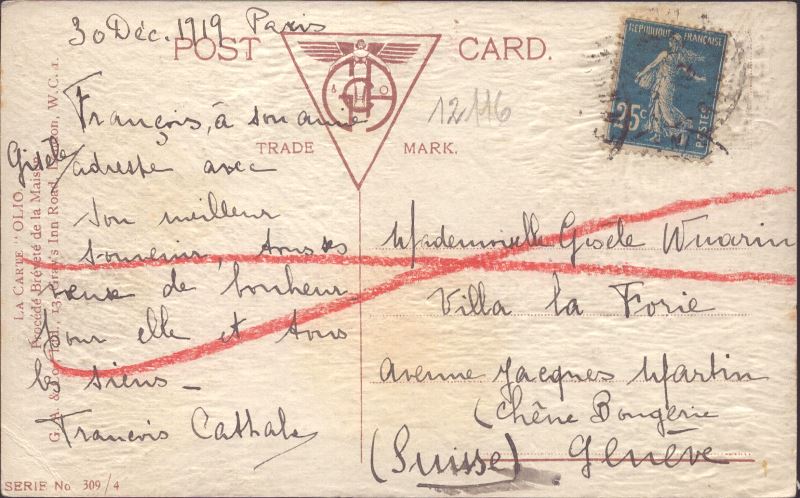 30 Déc. 1919 Paris
POST CARD.
TRADE MARK.
12116
REPUBLIQUE FRANÇAISE
25c
POSTES
François, à son amie
Gisèle adresse avec
son meilleur
souvenir, tous ses
vœux de bonheur
pour elle et tous
les siens -
François Cathala
Mademoiselle Gisèle Wuarin
Villa la Forie
Avenue Jacques Martin
(Chêne Bougerie
(Suisse) Genève
LA CARTE "OLIO"
Procédé Breveté de la Maison
G. A. & Co. Ltd., Inn Road, London, W.C.1.
SERIE No 309/4